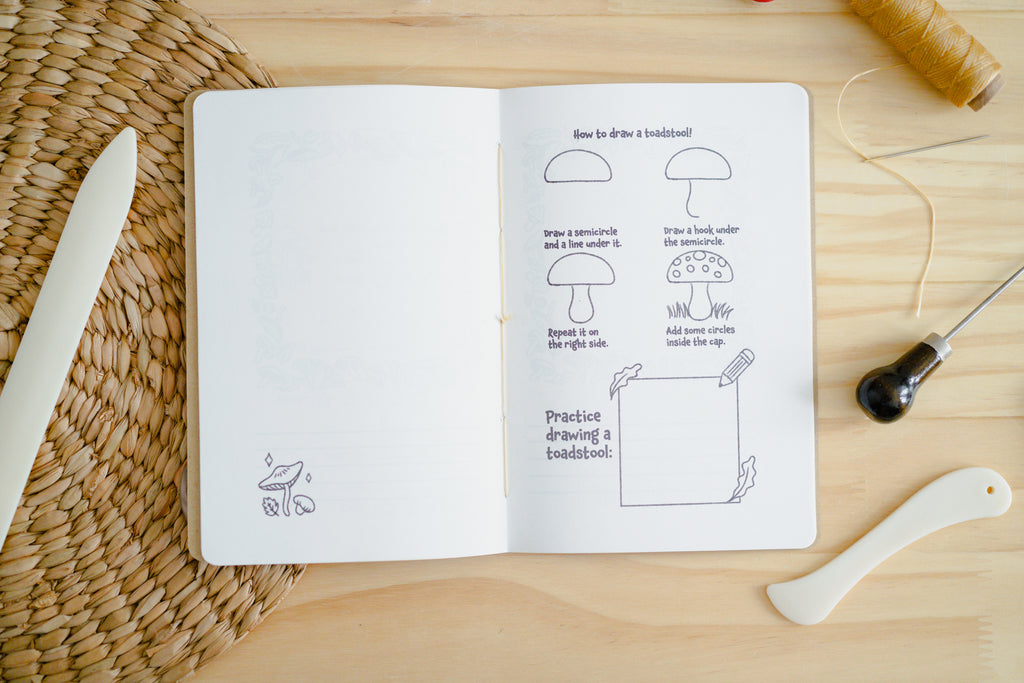 How to draw a toadstool!
Draw a semicircle
and a line under it.
Draw a hook under
the semicircle.
Repeat it on
the right side.
Add some circles
inside the cap.
Practice
drawing a
toadstool: